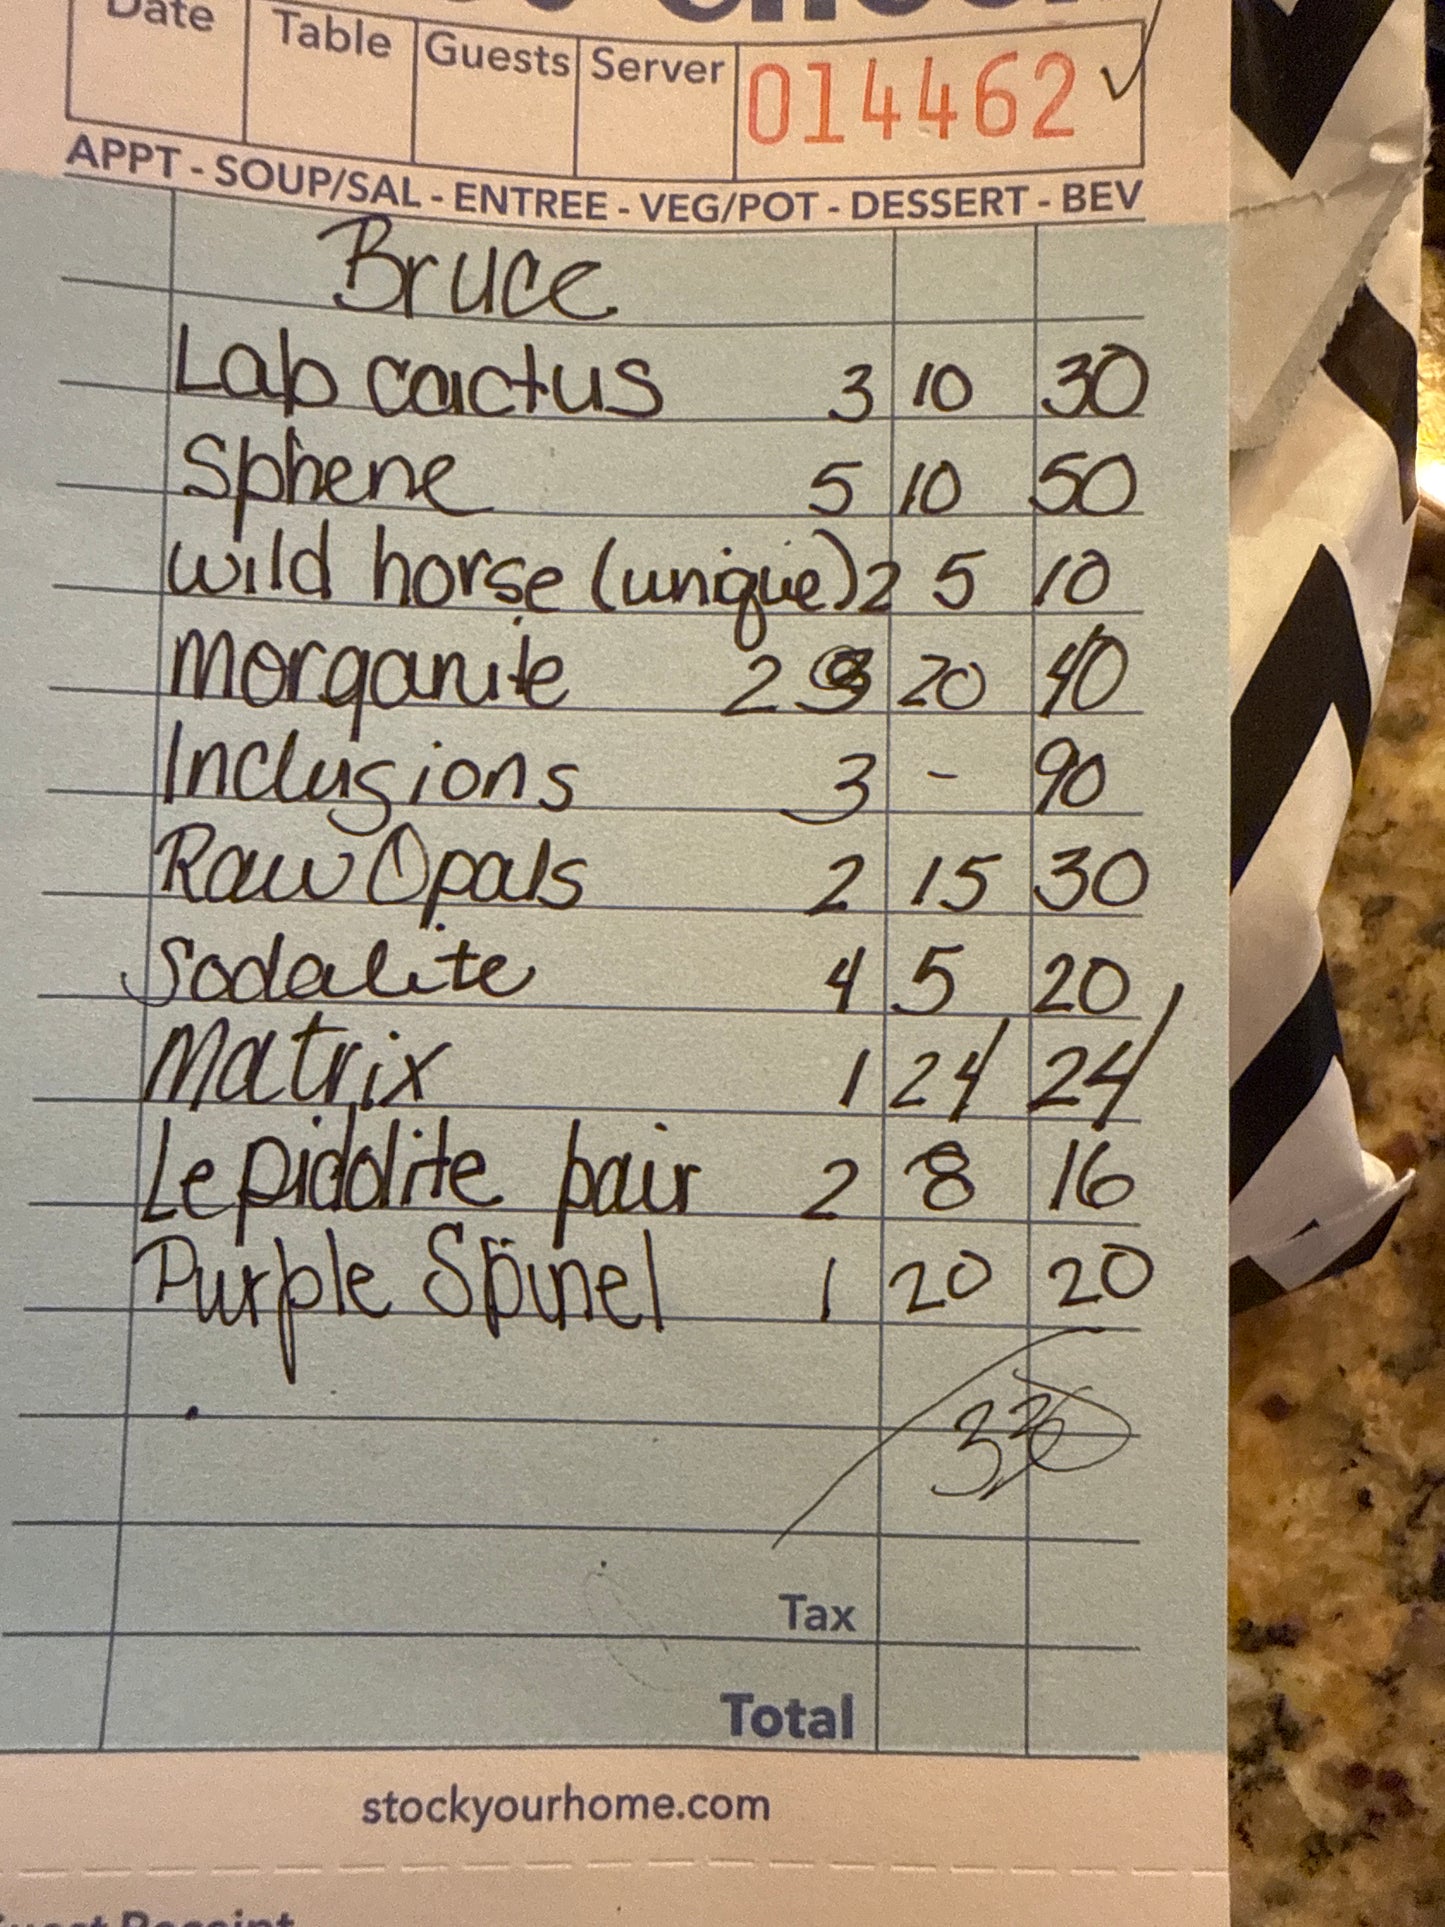 Date Table Guests Server 014462
APPT - SOUP/SAL - ENTREE - VEG/POT - DESSERT - BEV
Bruce
Lab cactus 3 10 30
Sphene 5 10 50
wild horse (unique) 2 5 10
Morganite 2 20 40
Inclusions 3 - 90
Raw Opals 2 15 30
Sodalite 4 5 20
Matrix 1 24 24
Lepidolite pair 2 8 16
Purple Spinel 1 20 20
Tax
Total
stockyourhome.com
Guest Receipt